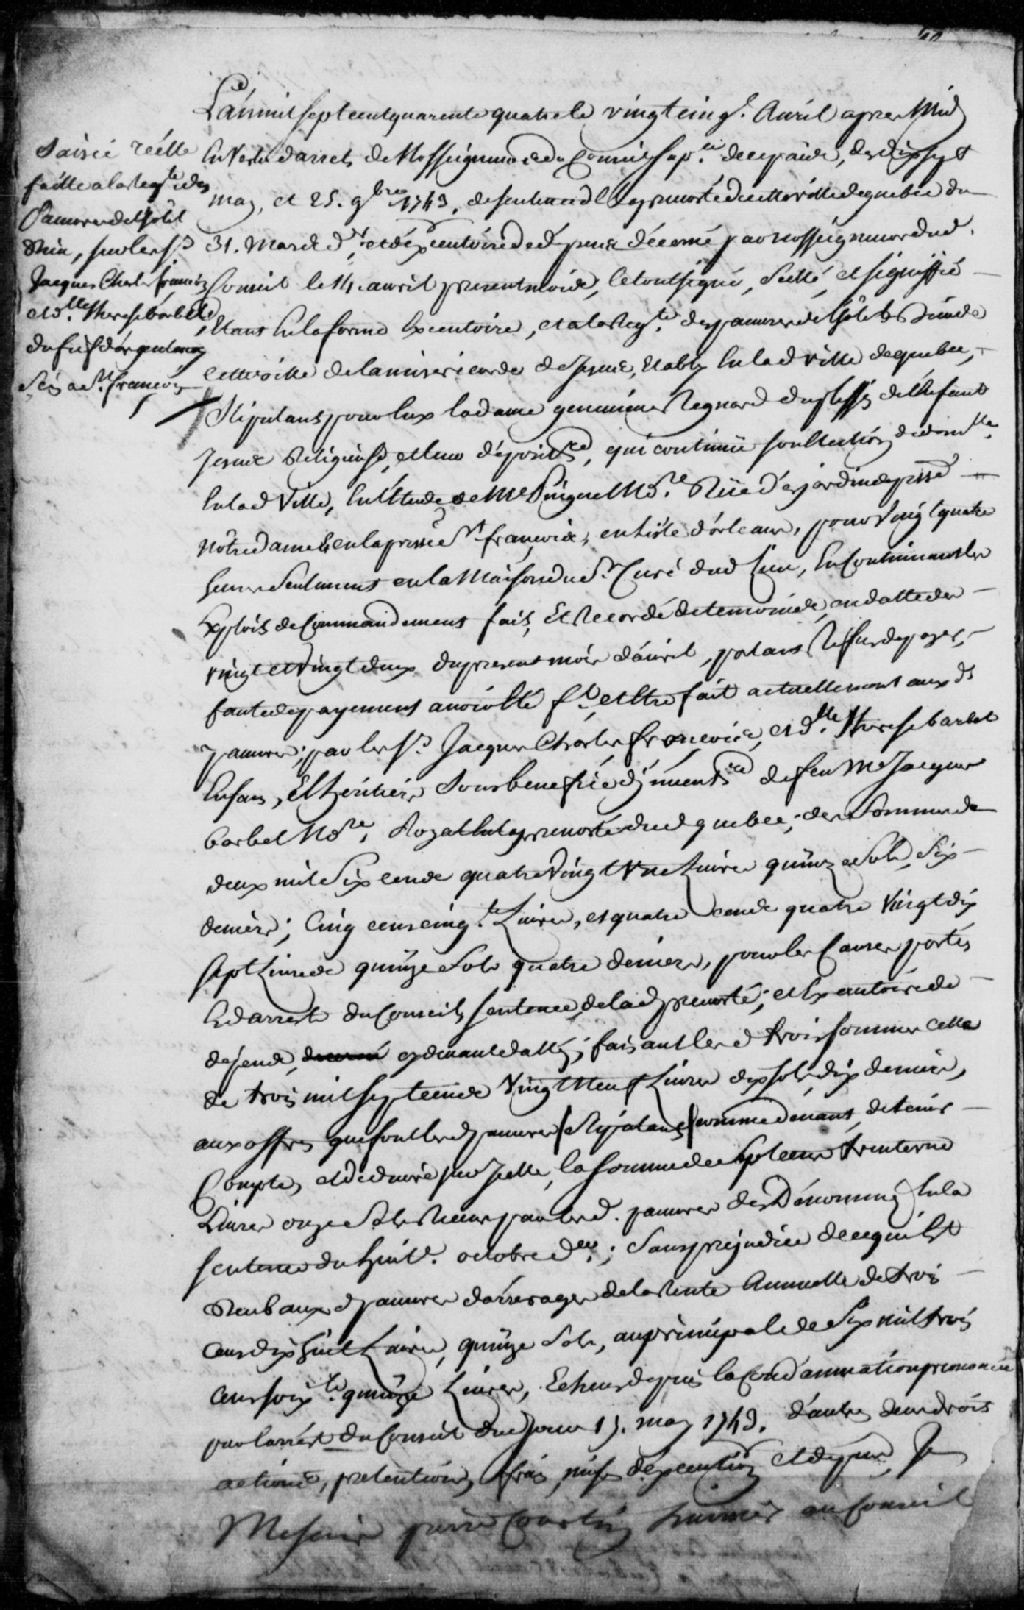 L'an mil sept cent quarente quatre le vingt cinq.e Avril apres Midy
Saisie réelle
faitte a la Req.te des
Pauvres de l'hôtel
Dieu, sur les S.r
Jacques Charles François
et d.lle Therese barbel
du fief d'argentenay
scis a S.t françois
En Vertu d'arrets de Nosseigneurs du Conseil Sup.r de ce païs, des dix sept
may, et 25. 9bre 1743, de sentence de la prevosté de cette ville de quebec du
31. Mars d.r, et d'éxecutoire de dépens décerné par nosseigneurs dud.
Conseil le 14. avril present mois, le tout signé, scellé, et signiffié
Etans En la forme Executoire, et a la Req.te des pauvres de l'hôtel Dieu de
cette ville de la misericorde de Jesus, Etably En lad ville de quebec,
Stipulans pour Eux la dame genevieve Regnard duplessis de l'Enfant
Jesus Religieuse, et leur dépositre, qui continüe son Election de dom.lle
En lad Ville, En l'Etude de Me Pinguet No.re Rüe des jardins
nôtre dame, et en la paroisse S.t françois, en l'isle d'orleans, pour vingt quatre
heures seulement en la Maison du S.r Curé dud lieu, En Continuant les
Exploits de Commandement fait, Et Recordé de temoins, en datte des
vingt et vingt deux du present mois d'avril, portant Refus de payer,
faute de payement avoir Eté f.t, et Etre fait actuellement aux d.s
pauvres; par les S.r Jacques Charles françois, et d.lle Therese barbel
Enfans, Et heritiers sous benefice d'inventre de feu Me Jacques
barbel No.re Royal En la prevosté dud quebec; des Sommes de
deux mil Six cents quatre Vingt Une Livres quinze Sols, Six
deniers; Cinq cens cinq.te Livres, et quatre cents quatre Vingt dix
sept Livres quinze Sols quatre deniers, pour les Causes portés
Esd arrests du Conseil, sentence de lad prevosté, et Executoire de
dépens, cy devant dattés; faisant les d trois sommes celle
de trois mil sept cents Vingt Neuf Livres dix sols dix deniers,
aux offres que font les d pauvres Stipulans comme devant, de tenir
Compte, et de déduire sur Icelle, la somme de sept cens trente une
Livres onze Sols Receus par les d. pauvres des Dénommés En la
sentence du huit.e octobre d.er; sans prejudice de ce qui Est
deub aux d pauvres d'arrerages de la Rente Annuelle de trois
cens dix huit Livres, quinze Sols, au principale de Six mil trois
cens soix.te quinze Livres, Echeus depuis la condamnation prononcée
par l'arrest du Conseil dud jour 17. may 1743. d'autres deus droits
actions, pretentions, frais, mises d'execution et depens, Je
Pierre Courtin huissier au Conseil